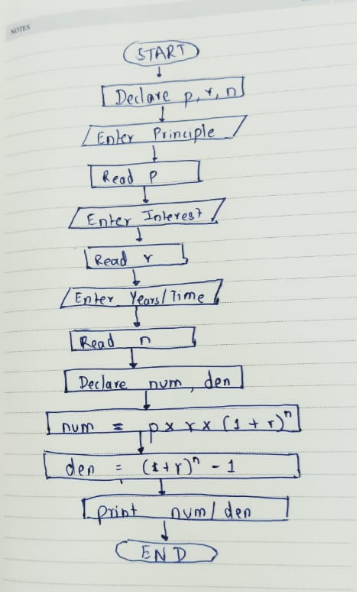 NOTES
START
Declare p, r, n
Enter Principle
Read p
Enter Interest
Read r
Enter Years/Time
Read n
Declare num, den
num = p x r x (1 + r)^n
den = (1+r)^n - 1
print num/den
END